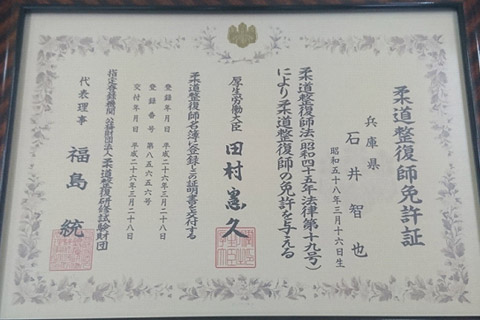 柔道整復師免許証
兵庫県
石井智也
昭和五十八年三月十六日生
柔道整復師法(昭和四十五年法律第十九号)
により柔道整復師の免許を与える
厚生労働大臣 田村憲久
柔道整復師名簿に登録しこの証明書を交付する
登録年月日 平成二十六年三月二十八日
登録番号 第八五六五六号
交付年月日 平成二十六年三月二十八日
指定登録機関 公益財団法人柔道整復研修試験財団
代表理事 福島統